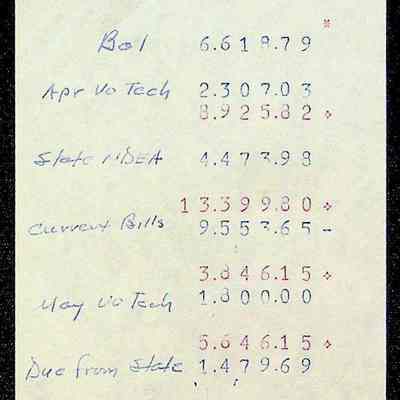 *
Bal 6.618.79
Apr Vo Tech 2.307.03
8.925.82 *
State NDEA 4.473.98
13.399.80 *
Current Bills 9.553.65 -
3.846.15 *
May Vo Tech 1.800.00
5.646.15 *
Due from State 1.479.69